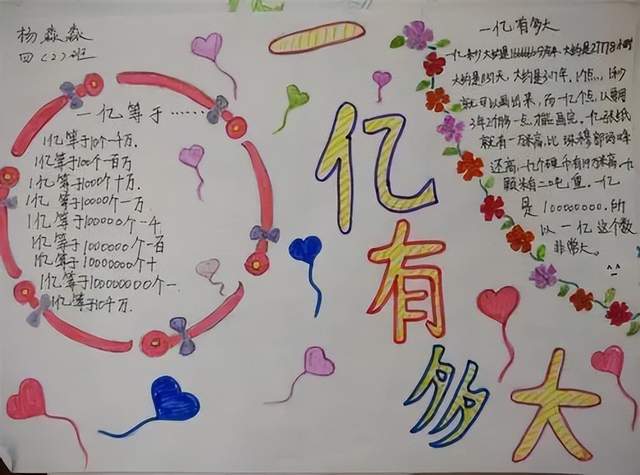 杨淼淼
四（2）班
一亿等于……
1亿等于10个千万.
1亿等于100个百万
1亿等于1000个十万.
1亿等于10000个一万.
1亿等于100000个一千
1亿等于1000000个一百
1亿等于10000000个十
1亿等于100000000个一.
1亿等于10千万.
亿
有
多
大
一亿有多大
一亿秒大约是1666666分钟.大约是27778小时
大约是1157天，大约是3.17年.1个点，1秒
就可以画出来，而一亿个点，只要用
3年2个月多一点，才能画完.一亿张纸
就有一万米高，比珠穆朗玛峰
还高，一亿个硬币有19万米高，一亿
颗米有二吨重.一亿
是100000000.所
以一亿这个数
非常大。